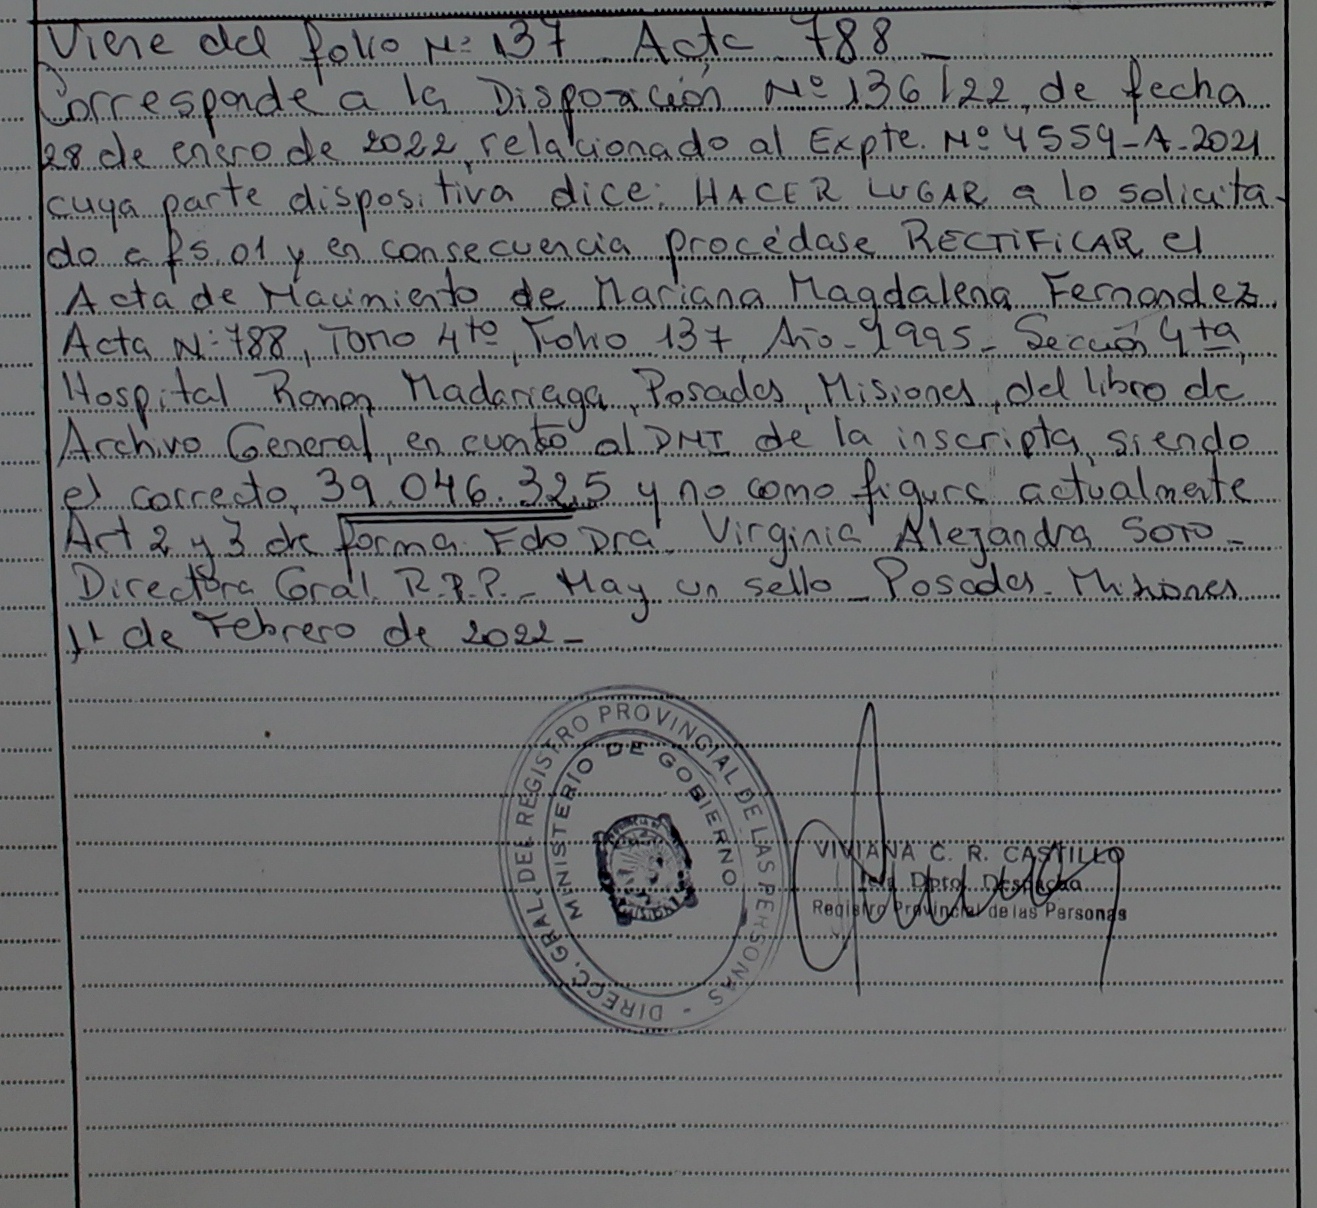 Viene del folio Nº 137 Acta 788 _
Corresponde a la Disposición Nº 136/22, de fecha
28 de enero de 2022, relacionado al Expte. Nº 4559-A-2021
cuya parte dispositiva dice: HACER LUGAR a lo solicita-
do a fs. 01 y en consecuencia procédase RECTIFICAR el
Acta de Nacimiento de Mariana Magdalena Fernandez.
Acta Nº 788, Tomo 4to, Folio 137, Año - 1995 - Sección 4ta,
Hospital Ramon Madariaga, Posadas, Misiones, del libro de
Archivo General, en cuanto al DNI de la inscripta, siendo
el correcto, 39.046.325 y no como figura actualmente
Art 2 y 3 de forma. Fdo Dra. Virginia Alejandra SOTO -
Directora Gral. R.P.P. - Hay un sello - Posadas - Misiones
11 de Febrero de 2022 -
DIRECC. GRAL. DEL REGISTRO PROVINCIAL DE LAS PERSONAS -
MINISTERIO DE GOBIERNO
VIVIANA C. R. CASTILLO
Jefa Dpto. Despacho
Registro Provincial de las Personas